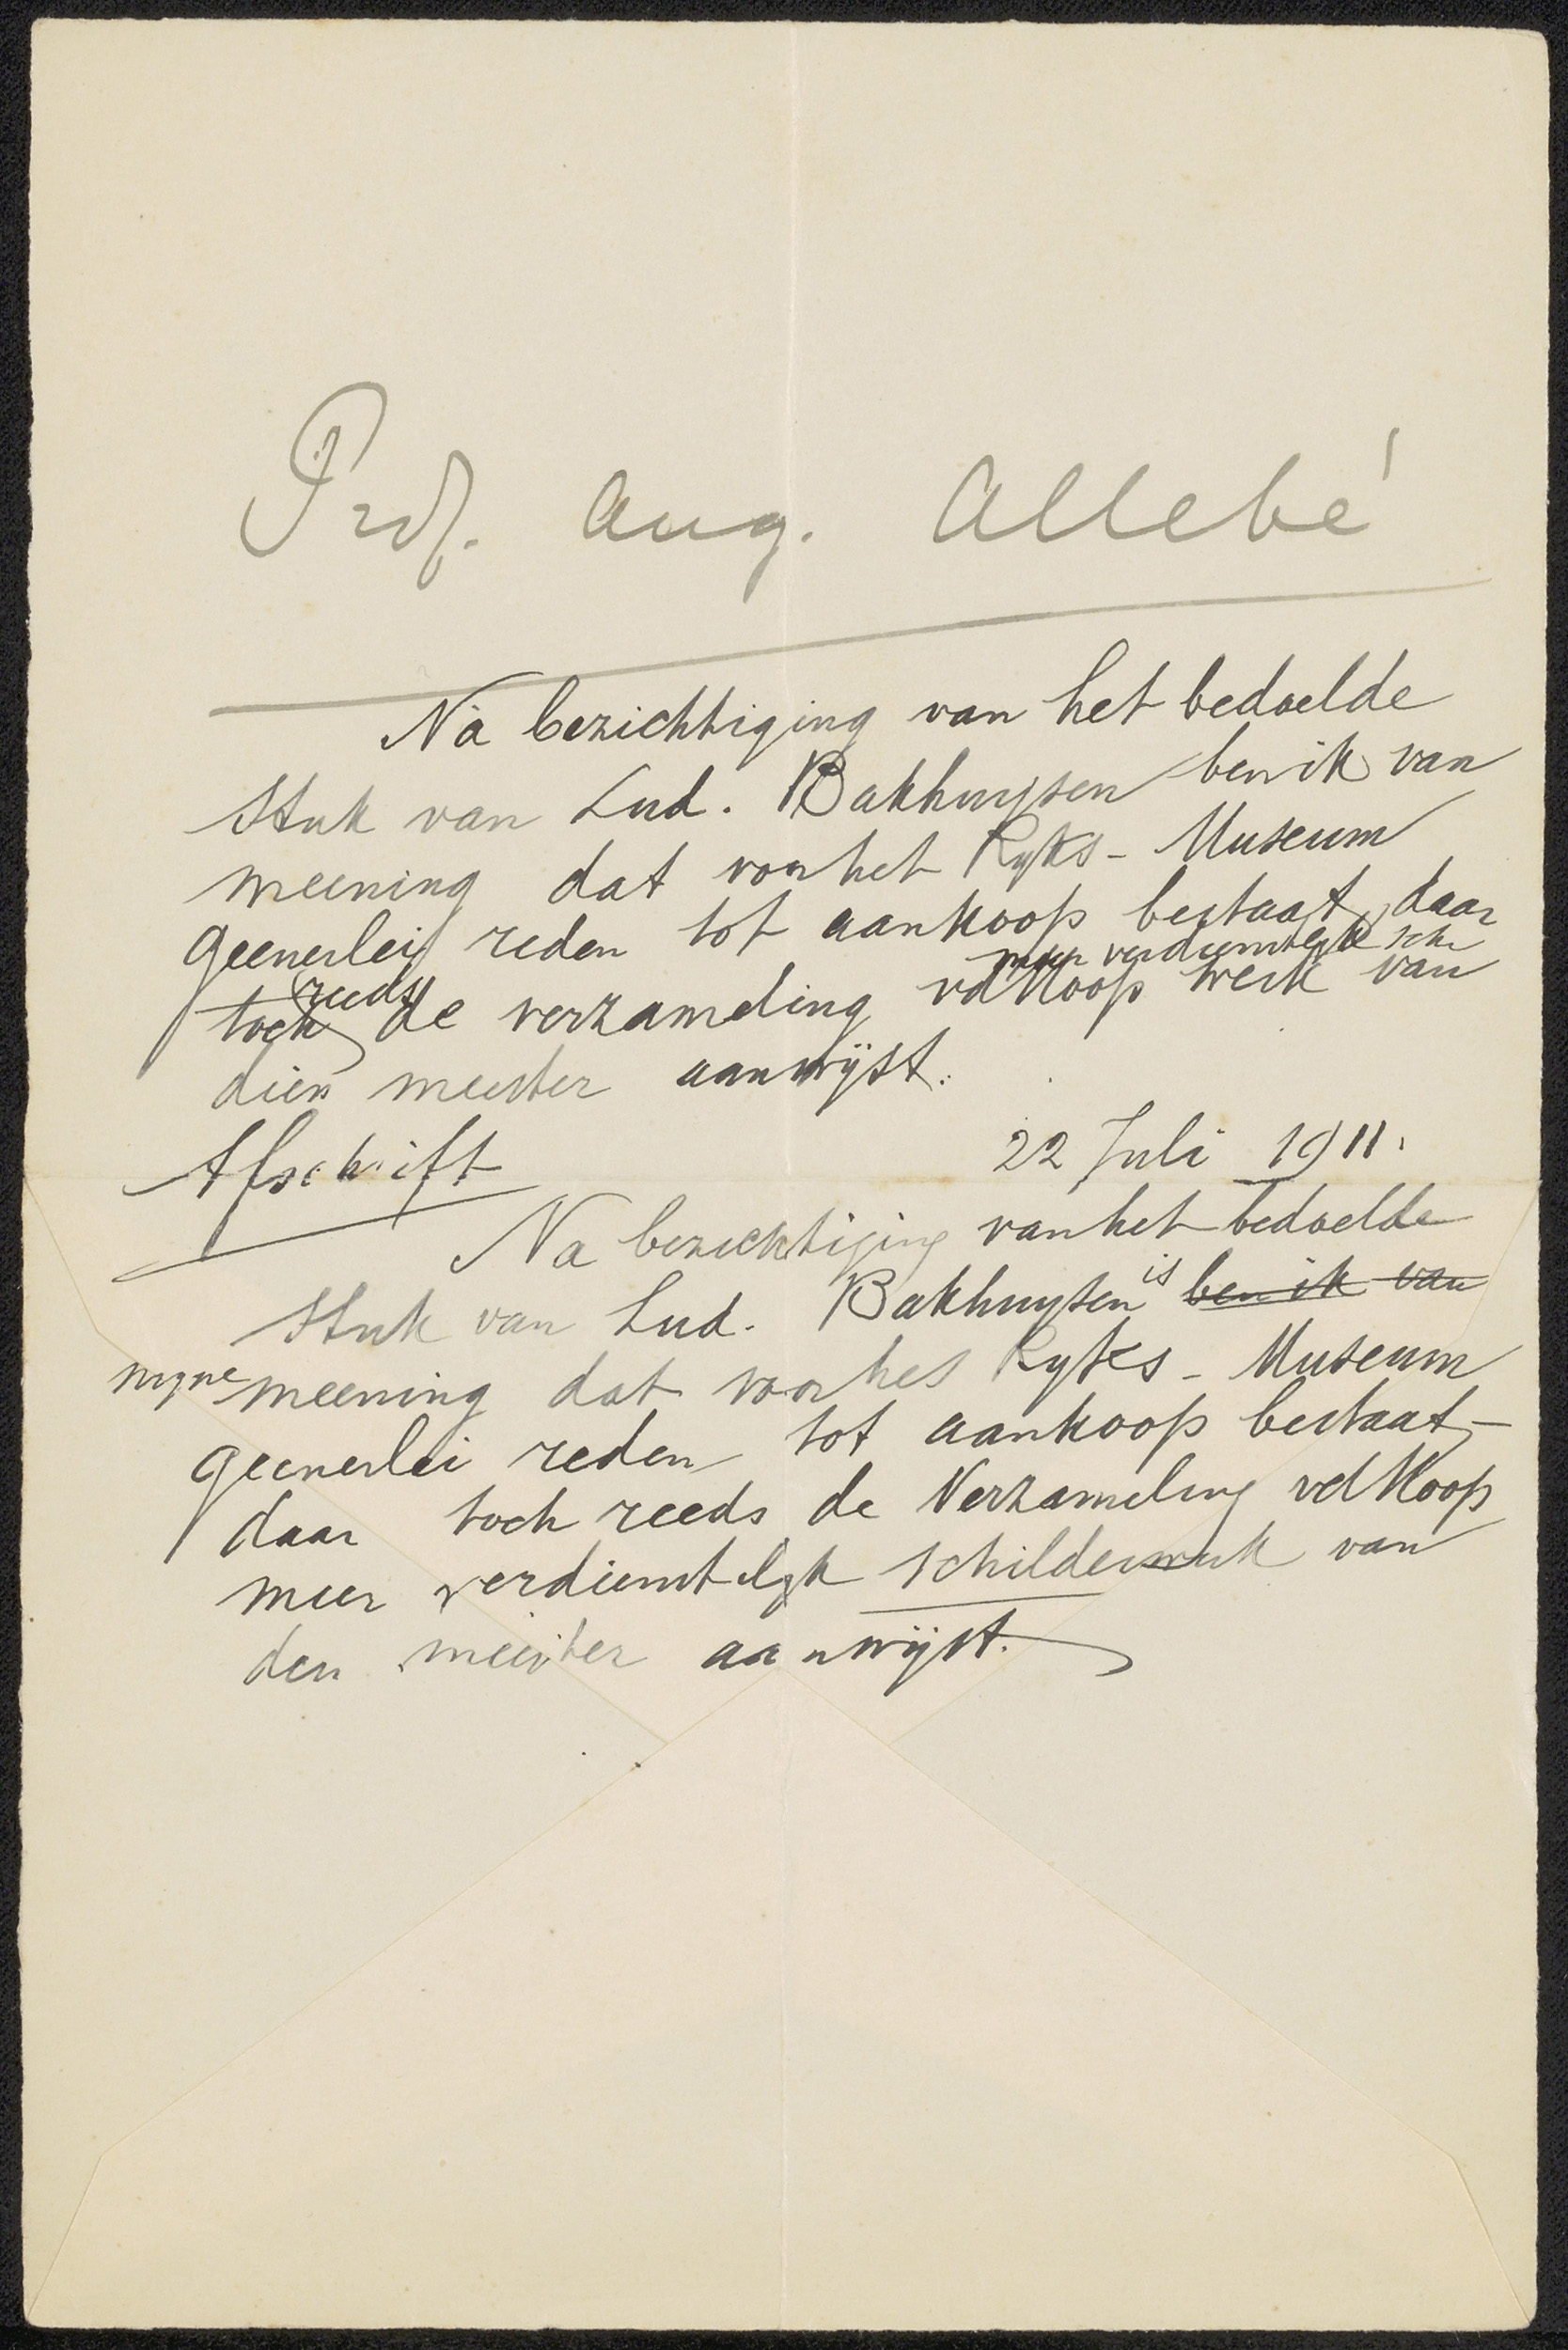 Prof. Aug. Allebé
Na bezichtiging van het bedoelde
Stuk van Lud. Bakhuysen ben ik van
meening dat voor het Ryks-Museum
geenerlei reden tot aankoop bestaat, daar
meer verdienstelyk sch
toch reeds de verzameling vd Hoop werk van
dien meester aanwijst.
Afschrift 22 Juli 1911.
Na bezichtiging van het bedoelde
Stuk van Lud. Bakhuysen is ben ik van
myne meening dat voor het Ryks-Museum
geenerlei reden tot aankoop bestaat
daar toch reeds de Verzameling vd Hoop
meer verdienstelyk schilderwerk van
den meester aanwijst.